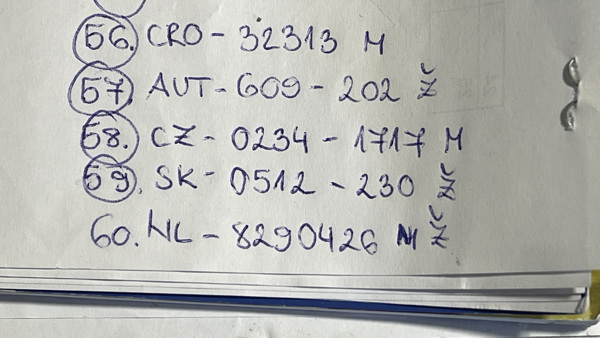 56. CRO - 32313 M
57. AUT - 609 - 202 Ž
58. CZ - 0234 - 1717 M
59. SK - 0512 - 230 Ž
60. NL - 8290426 Ž